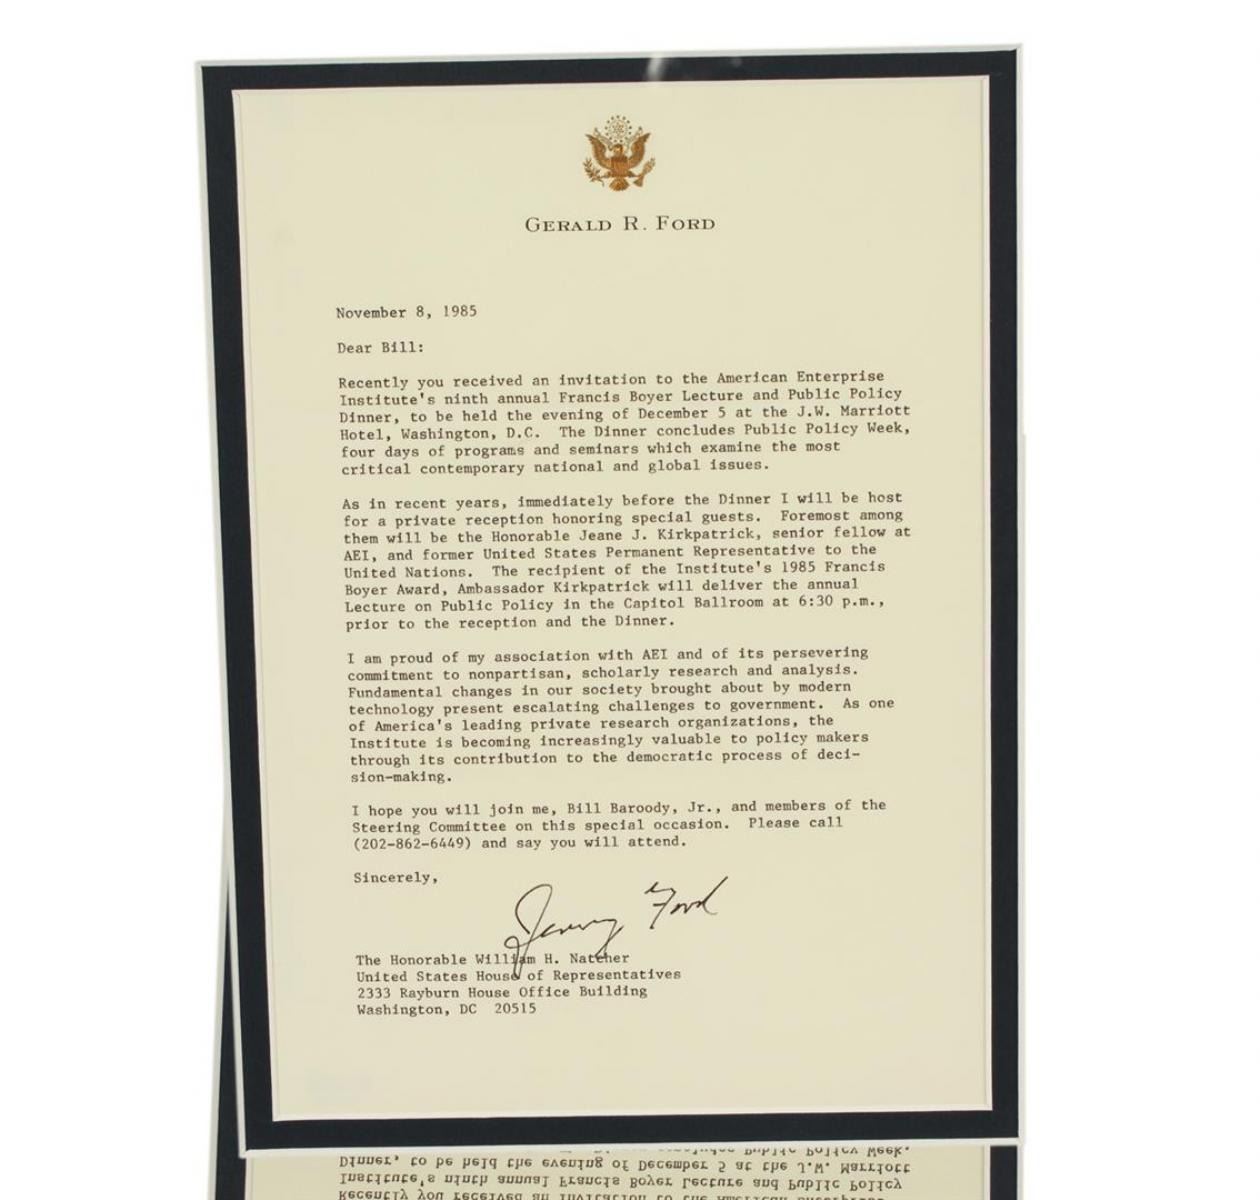 GERALD R. FORD
November 8, 1985
Dear Bill:
Recently you received an invitation to the American Enterprise
Institute's ninth annual Francis Boyer Lecture and Public Policy
Dinner, to be held the evening of December 5 at the J.W. Marriott
Hotel, Washington, D.C.  The Dinner concludes Public Policy Week,
four days of programs and seminars which examine the most
critical contemporary national and global issues.
As in recent years, immediately before the Dinner I will be host
for a private reception honoring special guests.  Foremost among
them will be the Honorable Jeane J. Kirkpatrick, senior fellow at
AEI, and former United States Permanent Representative to the
United Nations.  The recipient of the Institute's 1985 Francis
Boyer Award, Ambassador Kirkpatrick will deliver the annual
Lecture on Public Policy in the Capitol Ballroom at 6:30 p.m.,
prior to the reception and the Dinner.
I am proud of my association with AEI and of its persevering
commitment to nonpartisan, scholarly research and analysis.
Fundamental changes in our society brought about by modern
technology present escalating challenges to government.  As one
of America's leading private research organizations, the
Institute is becoming increasingly valuable to policy makers
through its contribution to the democratic process of deci-
sion-making.
I hope you will join me, Bill Baroody, Jr., and members of the
Steering Committee on this special occasion.  Please call
(202-862-6449) and say you will attend.
Sincerely,
Jerry Ford
The Honorable William H. Natcher
United States House of Representatives
2333 Rayburn House Office Building
Washington, DC  20515
Dinner, to be held the evening of December 5 at the J.W. Marriott
Institute's ninth annual Francis Boyer Lecture and Public Policy
Recently you received an invitation to the American Enterprise